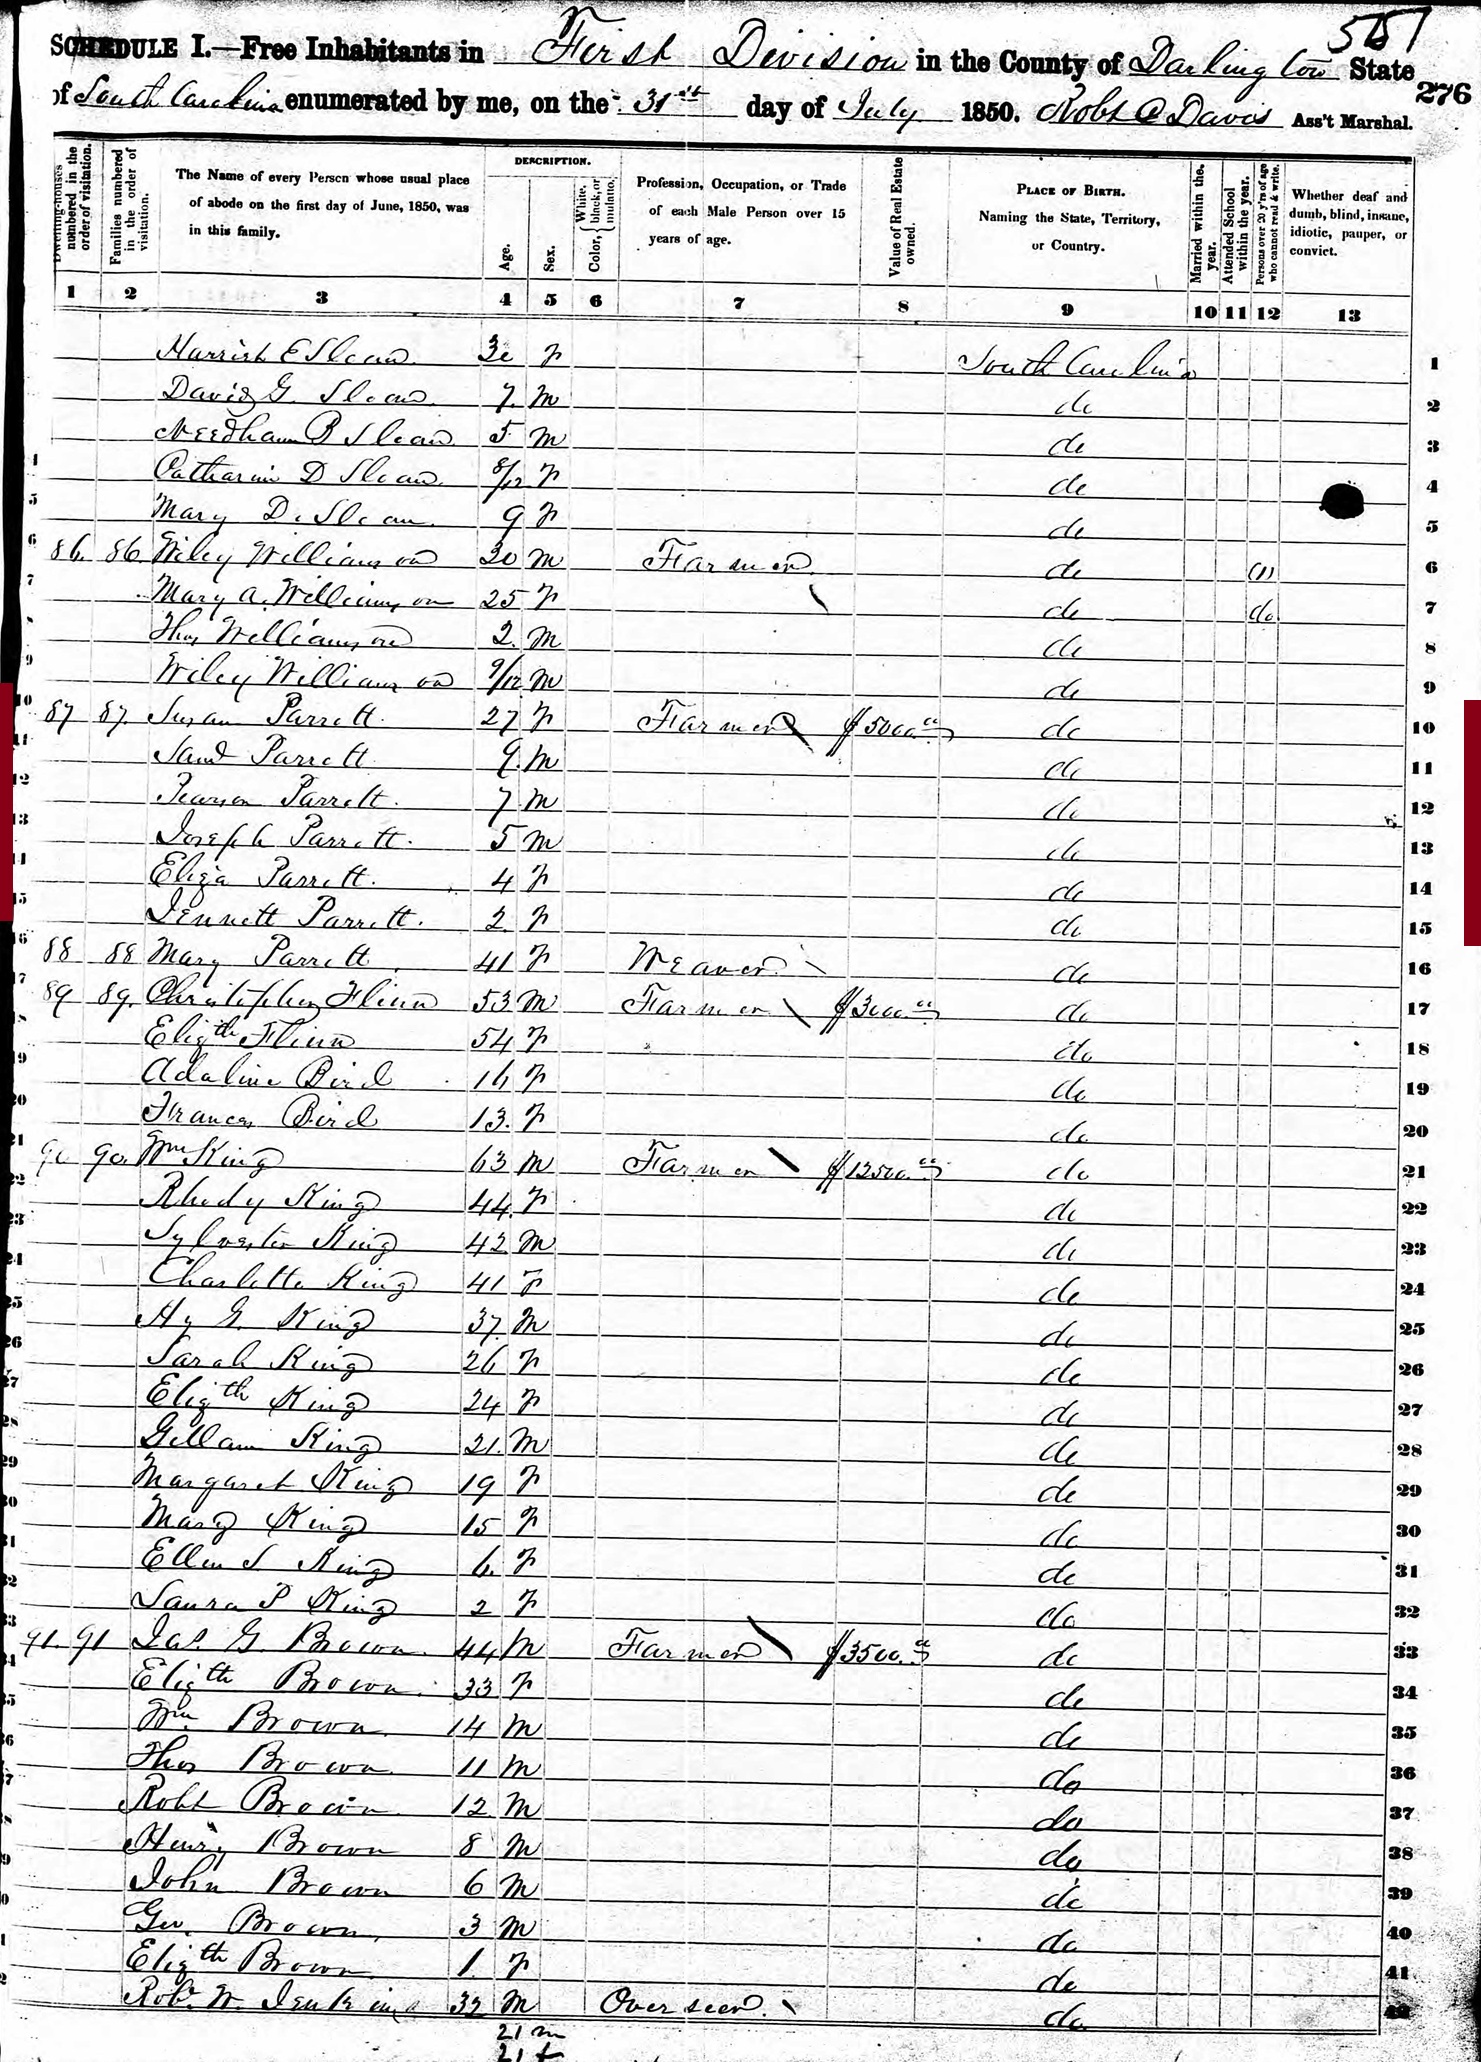 557
SCHEDULE I.—Free Inhabitants in First Division in the County of Darlington State
of South Carolina enumerated by me, on the 31st day of July 1850. Robt C Davis Ass't Marshal.
276
Dwelling-houses numbered in the order of visitation.
Families numbered in the order of visitation.
The Name of every Person whose usual place of abode on the first day of June, 1850, was in this family.
DESCRIPTION.
Age.
Sex.
Color, White, black, or mulatto.
Profession, Occupation, or Trade of each Male Person over 15 years of age.
Value of Real Estate owned.
PLACE OF BIRTH. Naming the State, Territory, or Country.
Married within the year.
Attended School within the year.
Persons over 20 y'rs of age who cannot read & write.
Whether deaf and dumb, blind, insane, idiotic, pauper, or convict.
1 2 3 4 5 6 7 8 9 10 11 12 13
E Sloan 30 F South Carolina 1
David G. Sloan 7 M do 2
Needham P Sloan 5 M do 3
Catharin D Sloan 8/12 F do 4
Mary D. Sloan 9 F do 5
86 86 Wiley Williamson 30 M Farmer do (1) 6
Mary A. Williamson 25 F do do 7
Thos Williamson 2 M do 8
Wiley Williamson 9/12 M do 9
87 87 Susan Parrott 27 F Farmer $5000.00 do 10
Saml Parrott 9 M do 11
Pearson Parrott 7 M do 12
Joseph Parrott 5 M do 13
Eliza Parrott 4 F do 14
Jennett Parrott 2 F do 15
88 88 Mary Parrott 41 F Weaver do 16
89 89 Christopher Flinn 53 M Farmer $3000.00 do 17
Elizth Flinn 54 F do 18
Adaline Bird 16 F do 19
Frances Bird 13 F do 20
90 90 Wm King 63 M Farmer $12500.00 do 21
Rhody King 44 F do 22
Sylvester King 42 M do 23
Charlotte King 41 F do 24
Hy G. King 37 M do 25
Sarah King 26 F do 26
Elizth King 24 F do 27
Gillam King 21 M do 28
Margaret King 19 F do 29
Mary King 15 F do 30
Ellen S King 6 F do 31
Laura P King 2 F do 32
91 91 Jas. G. Brown 44 M Farmer $3500.00 do 33
Elizth Brown 33 F do 34
Wm Brown 14 M do 35
Thos Brown 11 M do 36
Robt Brown 12 M do 37
Henry Brown 8 M do 38
John Brown 6 M do 39
Geo. Brown 3 M do 40
Elizth Brown 1 F do 41
Robt W. Jenkins 32 M Overseer do 42
21 m
21 f